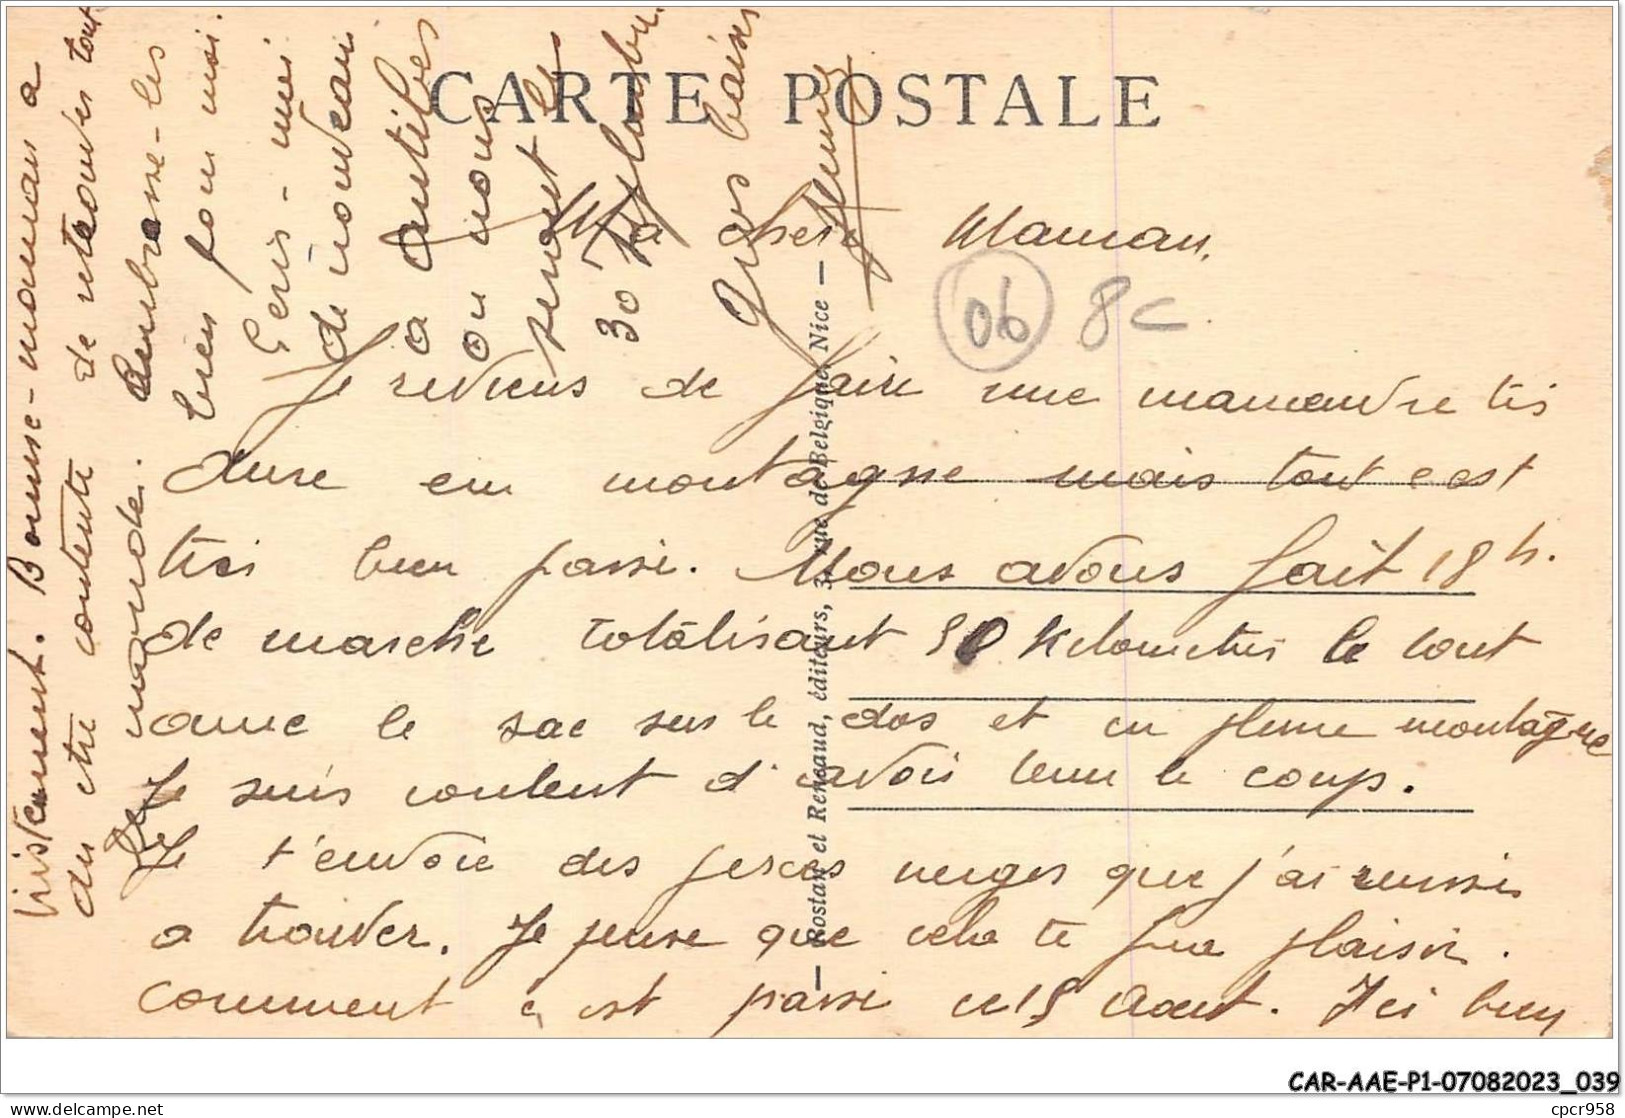 CARTE POSTALE
Ma cher Maman,
06 8c
Je reviens de faire une manœuvre très
dure en montagne mais tout c'est
très bien passé. Nous avons fait 18 h.
de marche totalisant 50 kilomètres le tout
avec le sac sur le dos et en pleine montagne
Je suis content d'avoir tenu le coup.
Je t'envoie des perces neiges que j'ai reussis
a trouver. Je pense que cela te fera plaisir.
comment c'est passé ce 15 Aout. Ici bien
tristement. Bonne-maman a
du etre contente de retrouver tout
le monde. Embrasse-les
bien pour moi.
Ecris-moi
de nouveau
a Antibes
ou nous
seront le
30
Gros baiser
— Rostan et Renaud, éditeurs, 3, rue de Belgique, Nice —
CAR-AAE-P1-07082023_039
delcampe.net
cpcr958